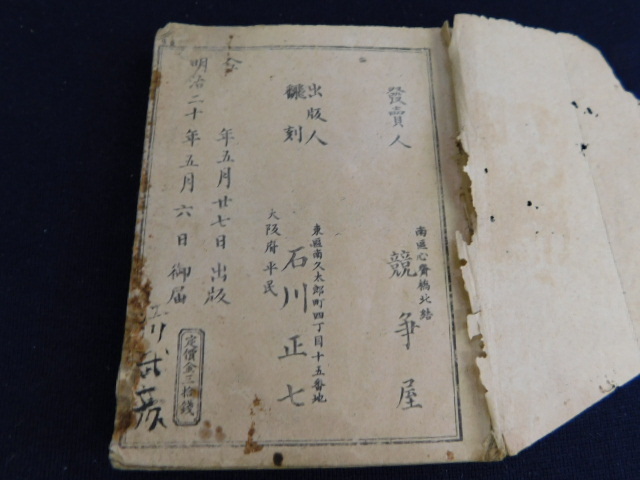 發賣人
南區心齋橋北詰
競争屋
出版人
翻刻
東區南久太郎町四丁目十五番地
石川正七
大阪府平民
仝年五月廿七日出版
明治二十年五月六日御届
定價金三拾錢